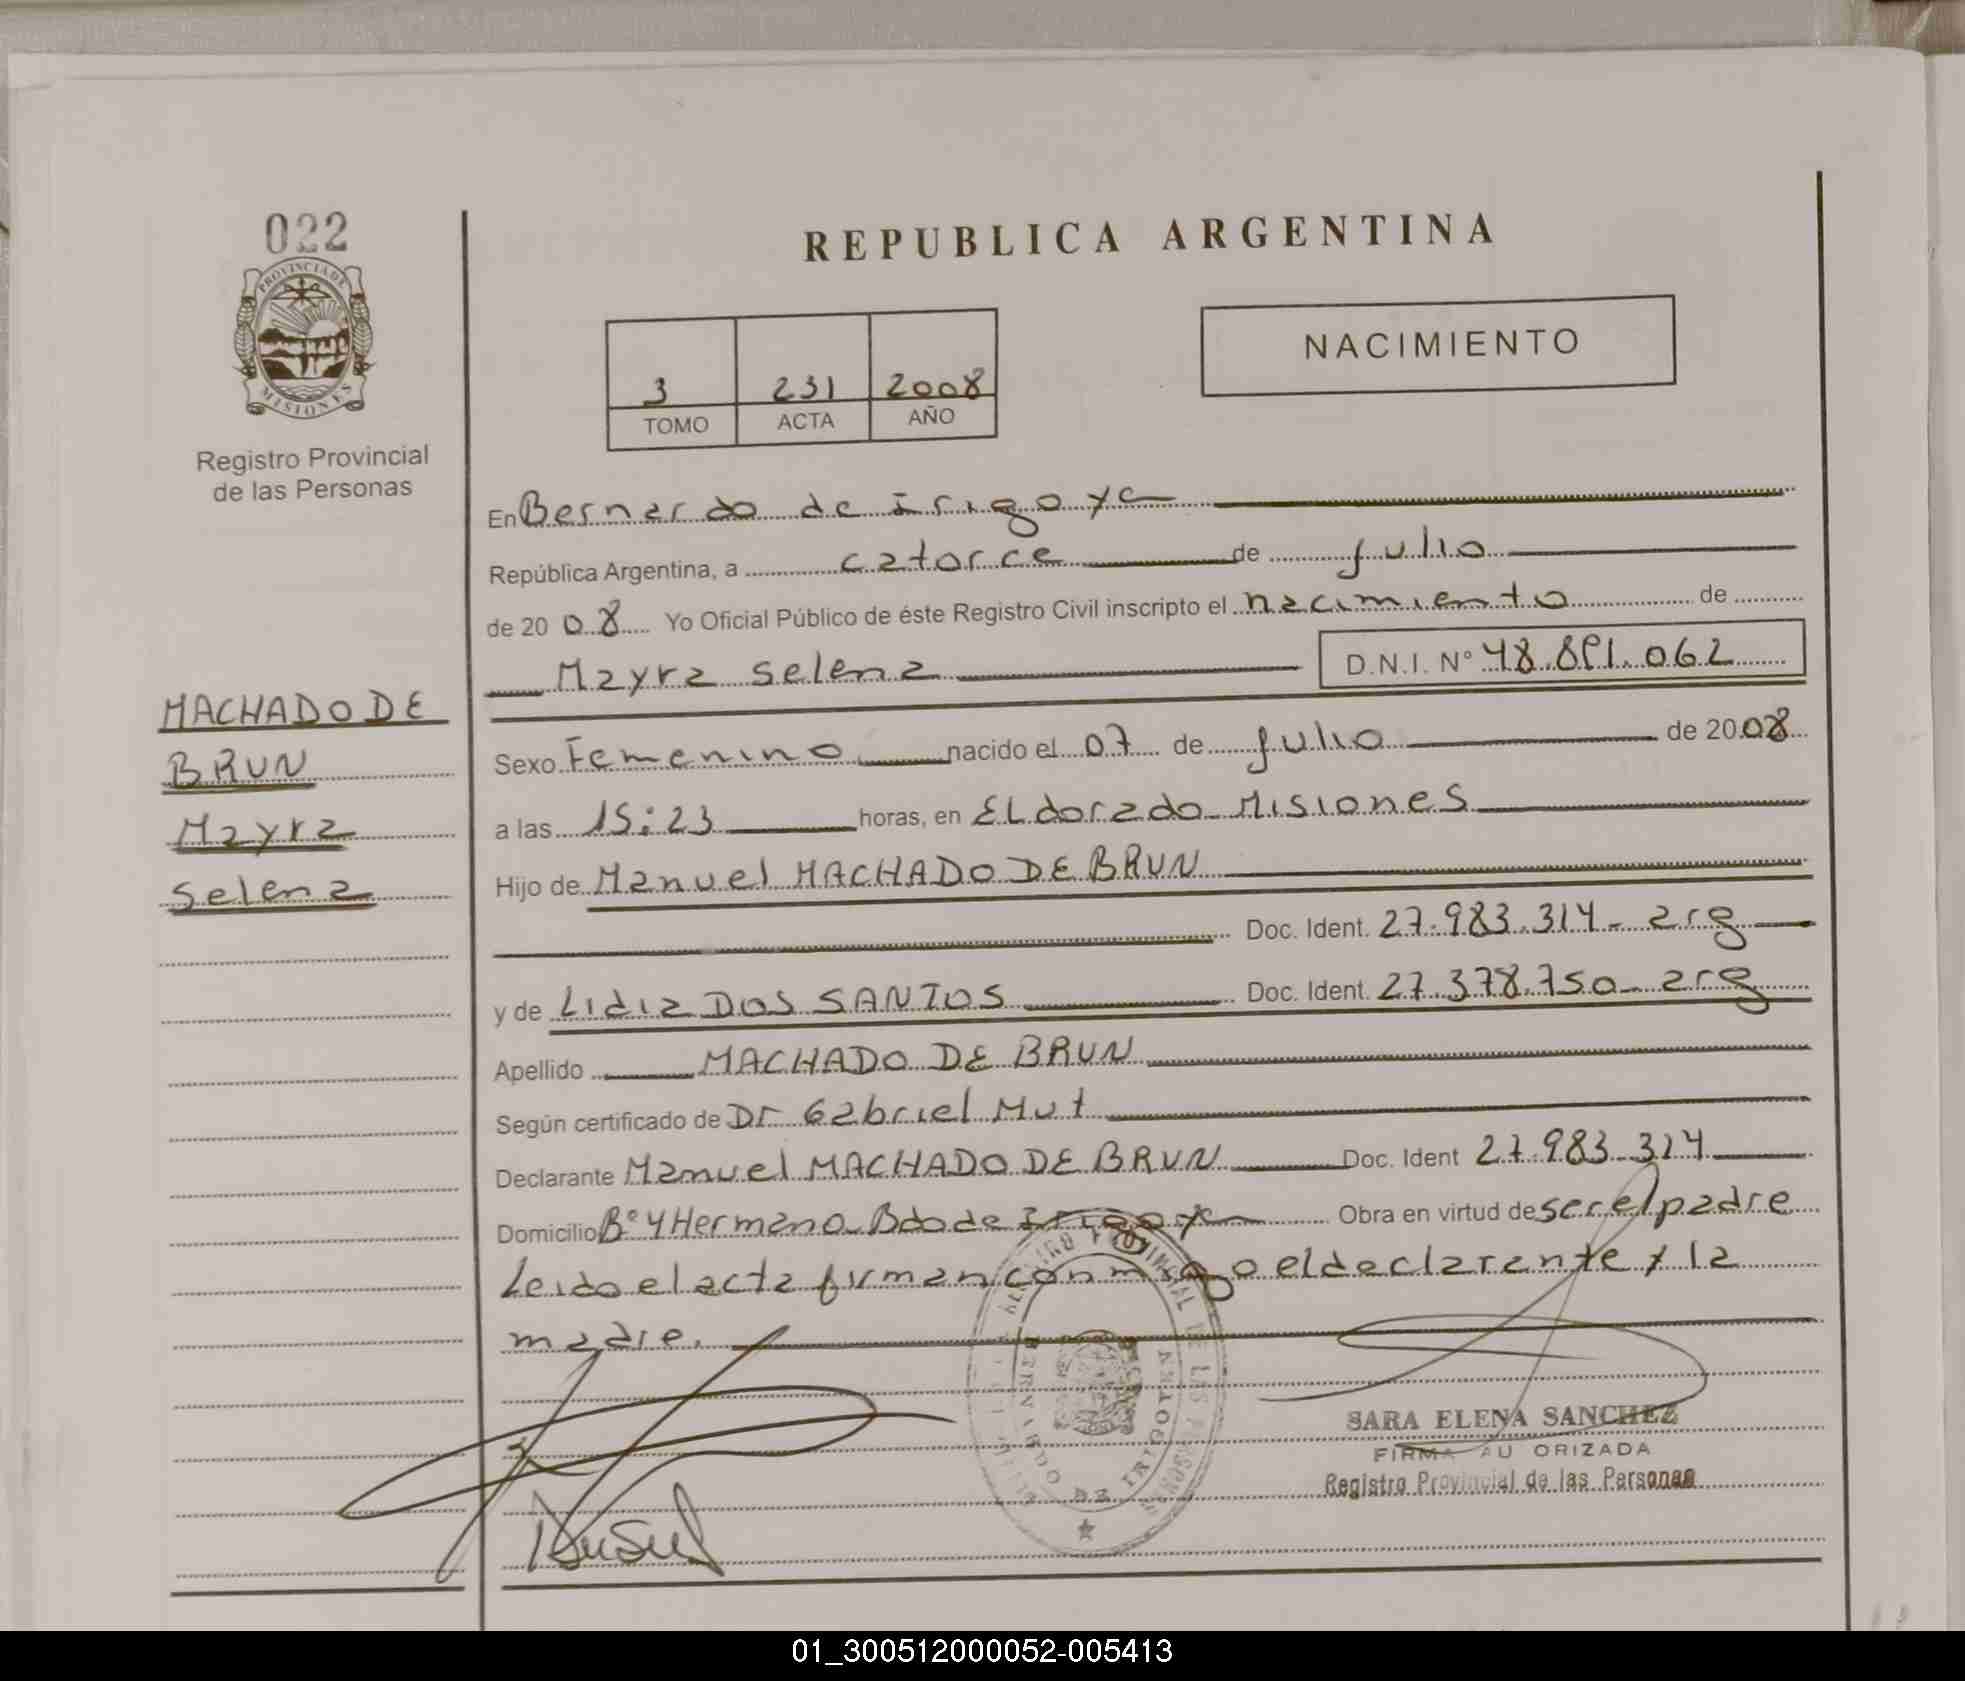 022
PROVINCIA DE
MISIONES
Registro Provincial
de las Personas
MACHADO DE
BRUN
Mayra
Selena
REPUBLICA ARGENTINA
3 231 2008
TOMO ACTA AÑO
NACIMIENTO
En Bernardo de Irigoye
República Argentina, a catorce de julio
de 20 08 Yo Oficial Público de éste Registro Civil inscripto el nacimiento de
Mayra Selena D.N.I. Nº 48.891.062
Sexo Femenino nacido el 07 de julio de 20 08
a las 15:23 horas, en ELdorado Misiones
Hijo de Manuel MACHADO DE BRUN
Doc. Ident. 27.983.314 - arg
y de Lidia DOS SANTOS Doc. Ident. 27.378.750 - arg
Apellido MACHADO DE BRUN
Según certificado de Dr Gabriel Mut
Declarante Manuel MACHADO DE BRUN Doc. Ident 27.983.314
Domicilio Bº 4 Hermano Bdo de Irigoye Obra en virtud de ser el padre
Leido el acta firman conmigo el declarante y la
madre.
REGISTRO PROVINCIAL DE LAS PERSONAS
BERNARDO DE IRIGOYEN
SARA ELENA SANCHEZ
FIRMA AU ORIZADA
Registro Provincial de las Personas
01_300512000052-005413